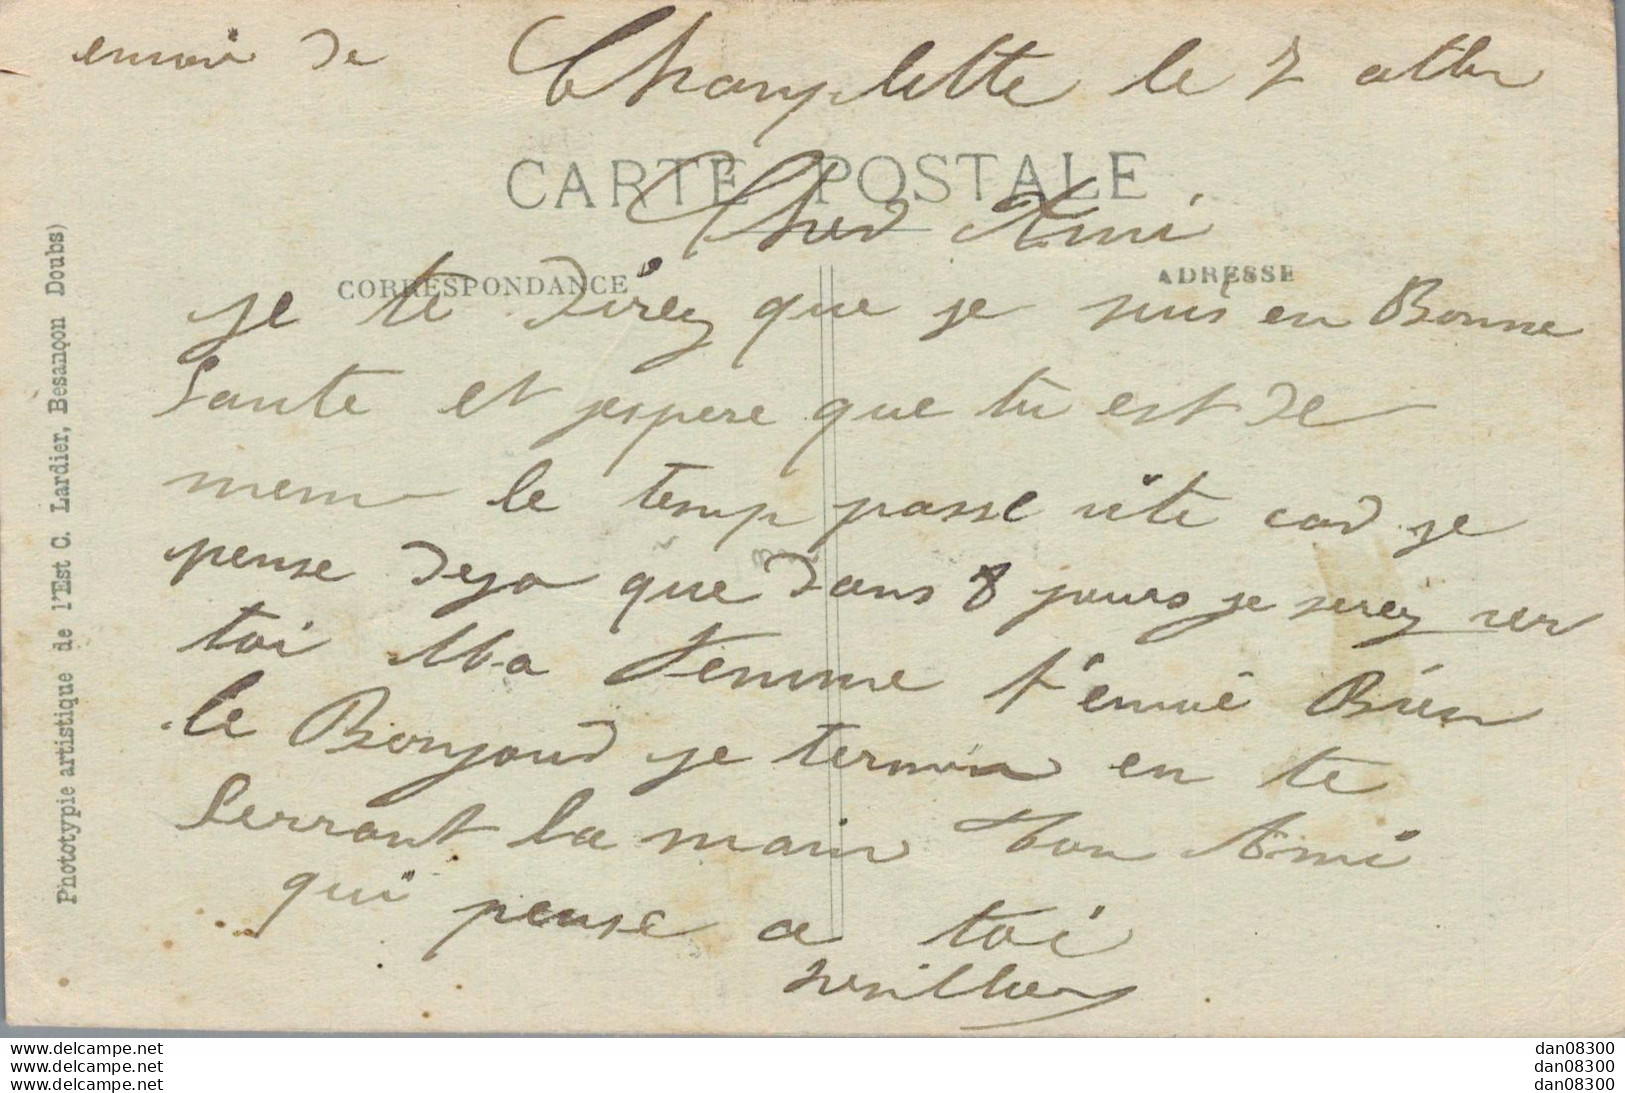 envoi de Champlitte le 7
CARTE POSTALE
Cher Ami
CORRESPONDANCE
ADRESSE
je te direz que je suis en Bonne
Sante et jespere que tu est de
mem le temp passe vite card je
pense deja que dans 8 jours je serez ver
toi Ma Femme t'envoie Bien
le Bonjourd je termin en te
Serrant la main Ton Ami
qui pense a toi
Phototypie artistique de l'Est C. Lardier, Besançon Doubs)
www.delcampe.net
www.delcampe.net
www.delcampe.net
dan08300
dan08300
dan08300